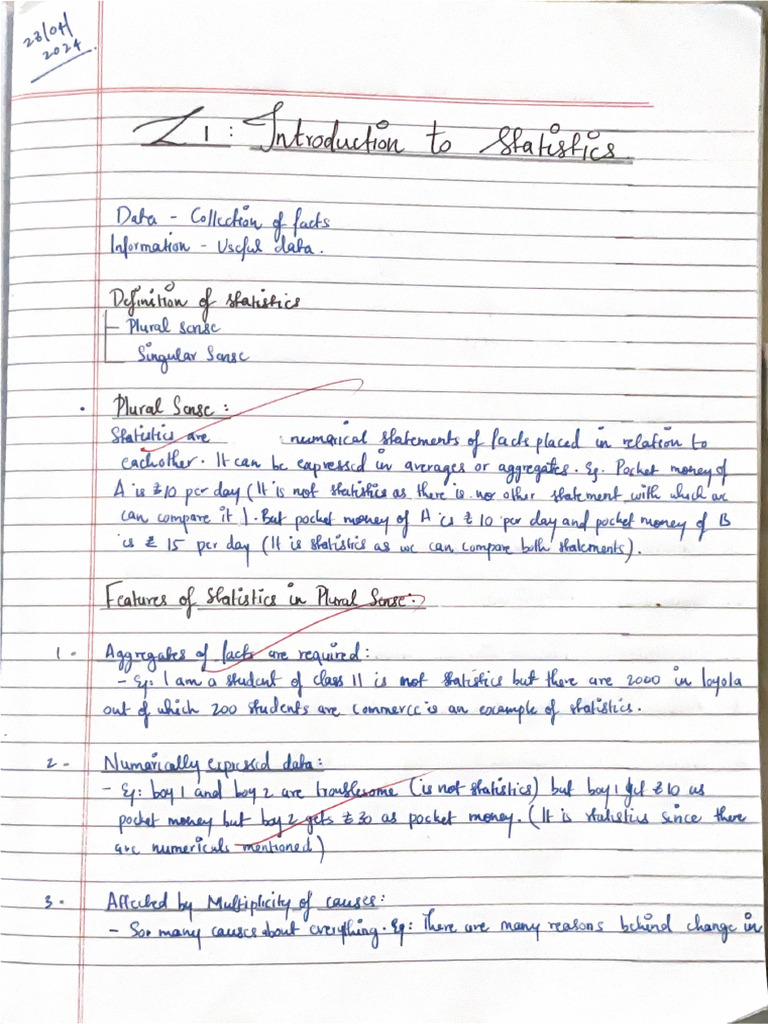 23/04/
2024
L1: Introduction to Statistics
Data - Collection of facts
Information - Useful data.
Definition of statistics
Plural sense
Singular Sense
Plural Sense:
Statistics are numerical statements of facts placed in relation to
eachother. It can be expressed in averages or aggregates. Eg. Pocket money of
A is ₹10 per day (It is not statistics as there is no other statement with which we
can compare it). But pocket money of A is ₹10 per day and pocket money of B
is ₹ 15 per day (It is statistics as we can compare both statements).
Features of Statistics in Plural Sense:
1- Aggregates of facts are required:
- Eg: I am a student of class 11 is not statistics but there are 2000 in loyola
out of which 200 students are commerce is an example of statistics.
2- Numerically expressed data:
- Eg: boy 1 and boy 2 are troublesome (is not statistics) but boy 1 get ₹10 as
pocket money but boy 2 gets ₹30 as pocket money. (It is statistics since there
are numericals mentioned)
3- Affected by Multiplicity of causes:
- So many causes about everything. Eg: There are many reasons behind change in